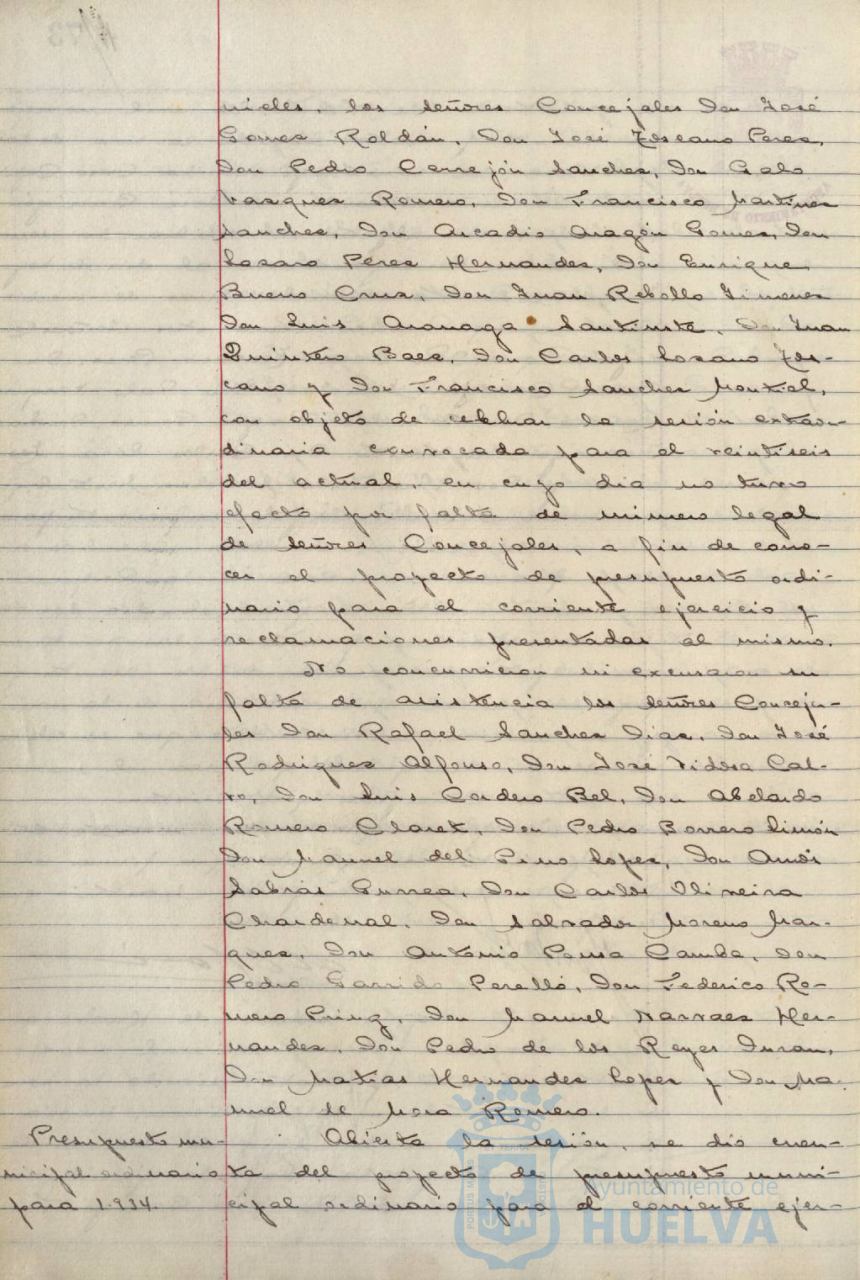 nicles, los señores Concejales Don José
Gomez Roldán, Don José Toscano Perez,
Don Pedro Cerrejón Sanchez, Don Galo
Vazquez Romero, Don Francisco Martinez
Sanchez, Don Arcadio Aragón Gomez, Don
Lozano Perez Hernandez, Don Enrique
Bueno Cruz, Don Juan Rebollo Jimenez
Don Luis Don Juan
Quintero Baez, Don Carlos Lozano Tos-
cano y Don Francisco Sanchez Montiel,
con objeto de celebrar la sesión extraor-
dinaria convocada para el veintiseis
del actual, en cuyo dia no tuvo
efecto por falta de número legal
de señores Concejales, a fin de cono-
cer el proyecto de presupuesto ordi-
nario para el corriente ejercicio y
reclamaciones presentadas al mismo.
No concurrieron ni excusaron su
falta de asistencia los señores Conceja-
les Don Rafael Sanchez Diaz, Don José
Rodriguez Alfonso, Don José Vidosa Cal-
vo, Don Luis Cordero Bel, Don Abelardo
Romero Claret, Don Pedro Borrero Limón
Don Manuel del Pino Lopez, Don Amós
Sabrás Gurrea, Don Carlos Oliveira
Chardenal, Don Salvador Moreno Mar-
quez, Don Antonio Pousa Camba, Don
Pedro Garrido Perelló, Don Federico Ro-
mero Don Manuel Narvaez Her-
nandez, Don Pedro de los Reyes Duran,
Don Matias Hernandez Lopez y Don Ma-
nuel de Mora Romero.
Presupuesto mu-
nicipal ordinario
para 1.934.
Abierta la sesión, se dio cuen-
ta del proyecto de presupuesto muni-
cipal ordinario para el corriente ejer-
Ayuntamiento de
HUELVA